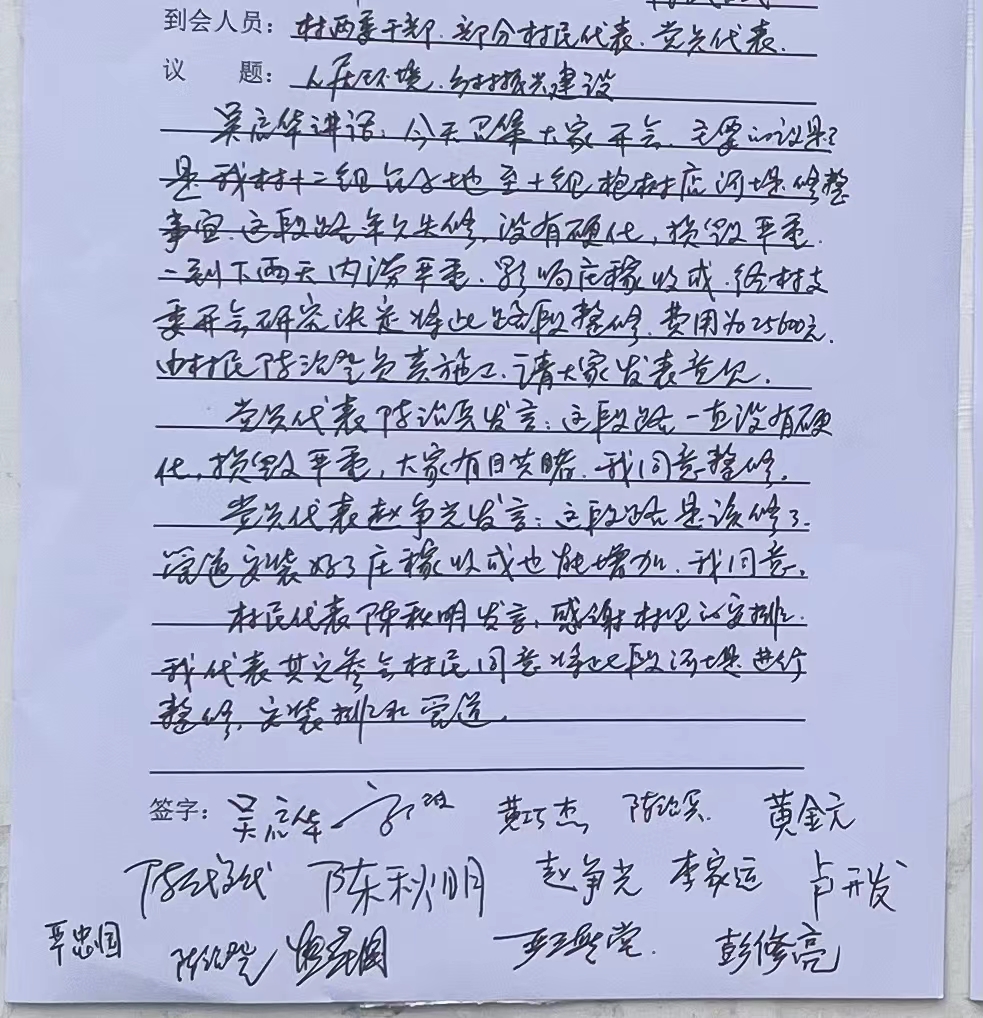 到会人员：村两委干部、部分村民代表、党员代表.
议 题：人居环境、乡村振兴建设
吴启华讲话：今天召集大家开会、主要的议题
是我村十二组台子地至十组 树店河堤修整
事宜.这段路年久失修,没有硬化,损毁严重.
一到下雨天内涝严重.影响庄稼收成.经村支
委开会研究决定将此路段整修.费用为25600元.
由村民陈治 负责施工.请大家发表意见.
党员代表陈治兵发言:这段路一直没有硬
化,损毁严重,大家有目共睹.我同意整修.
党员代表赵争光发言:这段路是该修了.
管道安装好了庄稼收成也能增加.我同意.
村民代表陈秋明发言.感谢村里的安排.
我代表其它参会村民同意将此段河堤进行
整修,安装排水管道.
签字: 吴启华 黄巧杰 黄金元
陈秋明 赵争光 李家运 卢开发
严忠国 彭修亮